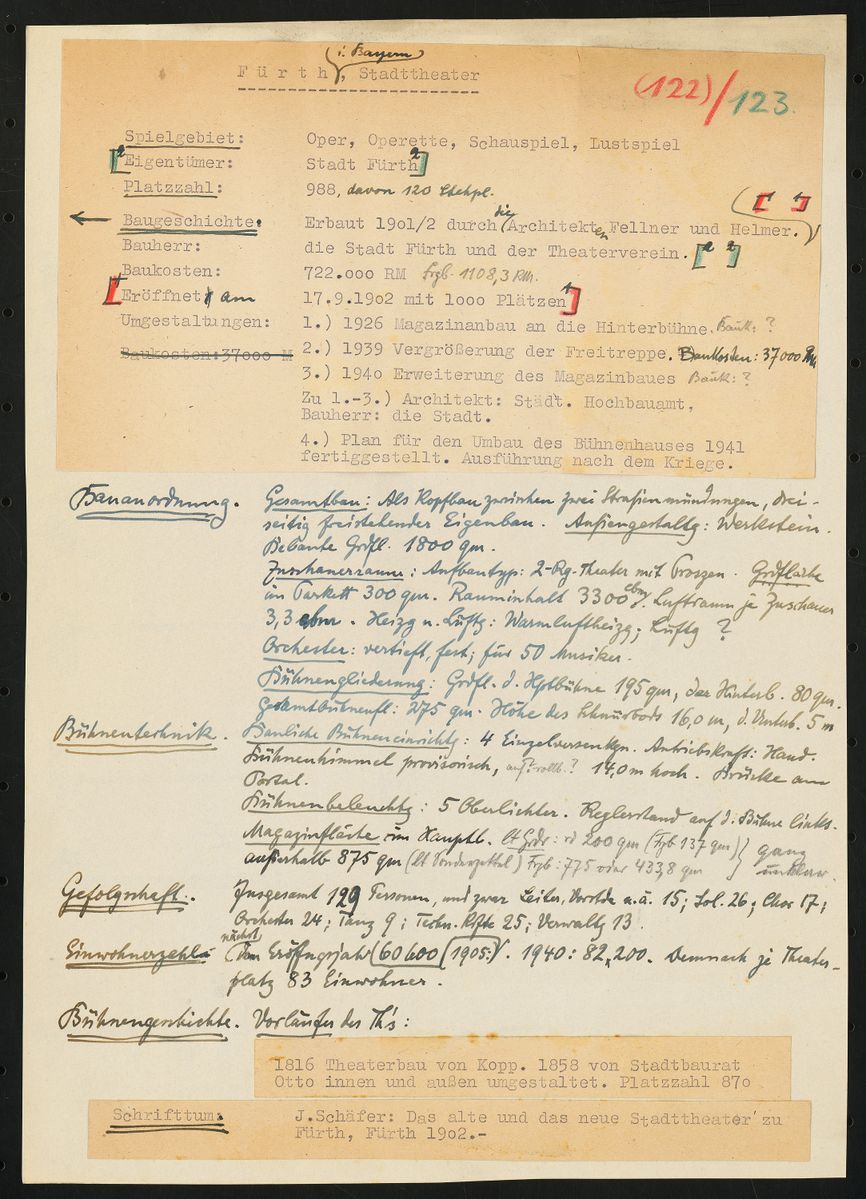 i. Bayern
Fürth, Stadttheater
(122)/123.
Spielgebiet: Oper, Operette, Schauspiel, Lustspiel
[2 Eigentümer: Stadt Fürth 2]
Platzzahl: 988, davon 120 Stehpl.
[1 1]
← Baugeschichte: Erbaut 19o1/2 durch die Architekten Fellner und Helmer.
Bauherr: die Stadt Fürth und der Theaterverein. [2 2]
Baukosten: 722.ooo RM Frgb. 1108,3 RM.
[Eröffnet am 17.9.19o2 mit 1ooo Plätzen 1]
Umgestaltungen: 1.) 1926 Magazinanbau an die Hinterbühne. Bauk: ?
Baukosten:37ooo M 2.) 1939 Vergrößerung der Freitreppe. Baukosten: 37000 RM
3.) 194o Erweiterung des Magazinbaues Bauk: ?
Zu 1.-3.) Architekt: Städt. Hochbauamt,
Bauherr: die Stadt.
4.) Plan für den Umbau des Bühnenhauses 1941
fertiggestellt. Ausführung nach dem Kriege.
Bauanordnung. Gesamtbau: Als Kopfbau zwischen zwei Straßenmündungen, drei-
seitig freistehender Eigenbau. Außengestaltg: Werkstein.
Bebaute Grdfl. 1800 qm.
Zuschauerraum: Aufbautyp: 2-Rg-Theater mit Proszen. Grdfläche
im Parkett 300 qm. Rauminhalt 3300 cbm, Luftraum je Zuschauer
3,3 cbm. Heizg u. Lüftg: Warmluftheizg; Lüftg ?
Orchester: vertieft, fest; für 50 Musiker.
Bühnengliederung: Grdfl. d. Hptbühne 195 qm, der Hinterb. 80 qm.
Gesamtbühnenfl: 275 qm. Höhe des Schnürbods 16,0 m, d. Unterb. 5 m
Bühnentechnik. Bauliche Bühneneinrichtg: 4 Einzelversenkgn. Antriebskraft: Hand.
Bühnenhimmel provisorisch, aufrollb.? 14,0 m hoch. Brücke am
Portal.
Bühnenbeleuchtg: 5 Oberlichter. Reglerstand auf d. Bühne links.
Magazinfläche im Haupth. lt Grdr: rd 200 qm (Frgb 137 qm)} ganz
außerhalb 875 qm (lt Sonderzettel) Frgb: 775 oder 433,8 qm } unklar.
Gefolgschaft. Insgesamt 129 Personen, und zwar Leiter, Vorstde u.ä. 15; Sol. 26; Chor 17;
Orchester 24; Tanz 9; Techn. Kfte 25; Verwaltg 13.
nächst
Einwohnerzahl: Dem Eröffngsjahr (60600 (1905:). 1940: 82,200. Demnach je Theater-
platz 83 Einwohner.
Bühnengeschichte. Vorläufer des Th's:
1816 Theaterbau von Kopp. 1858 von Stadtbaurat
Otto innen und außen umgestaltet. Platzzahl 87o
Schrifttum: J.Schäfer: Das alte und das neue Stadttheater zu
Fürth, Fürth 19o2.-